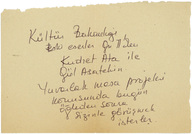 Kültür Bakanlığı
Eski eserler Gn. Md.
Kudret Ata ile
Gül Asatekin
Yuvarlak masa projeleri
konusunda bugün
öğleden sonra
sizinle görüşmek
isterler